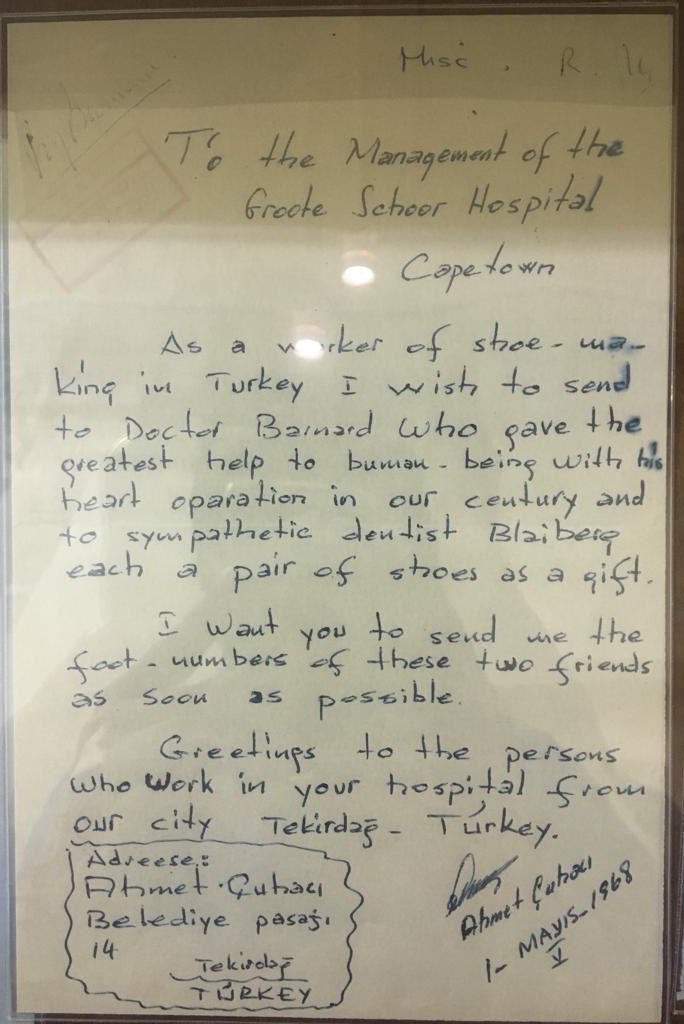 Misc . R.
To the Management of the
Groote Schoor Hospital
Capetown
As a worker of shoe-ma-
king in Turkey I wish to send
to Doctor Barnard who gave the
greatest help to buman-being with his
heart oparation in our century and
to sympathetic dentist Blaiberg
each a pair of shoes as a gift.
I want you to send me the
foot-numbers of these two friends
as soon as possible.
Greetings to the persons
who work in your hospital from
our city Tekirdağ - Türkey.
Adreese:
Ahmet Çuhacı
Belediye pasajı
14
Tekirdağ
TÜRKEY
Ahmet Çuhacı
1- MAYIS-1968
V